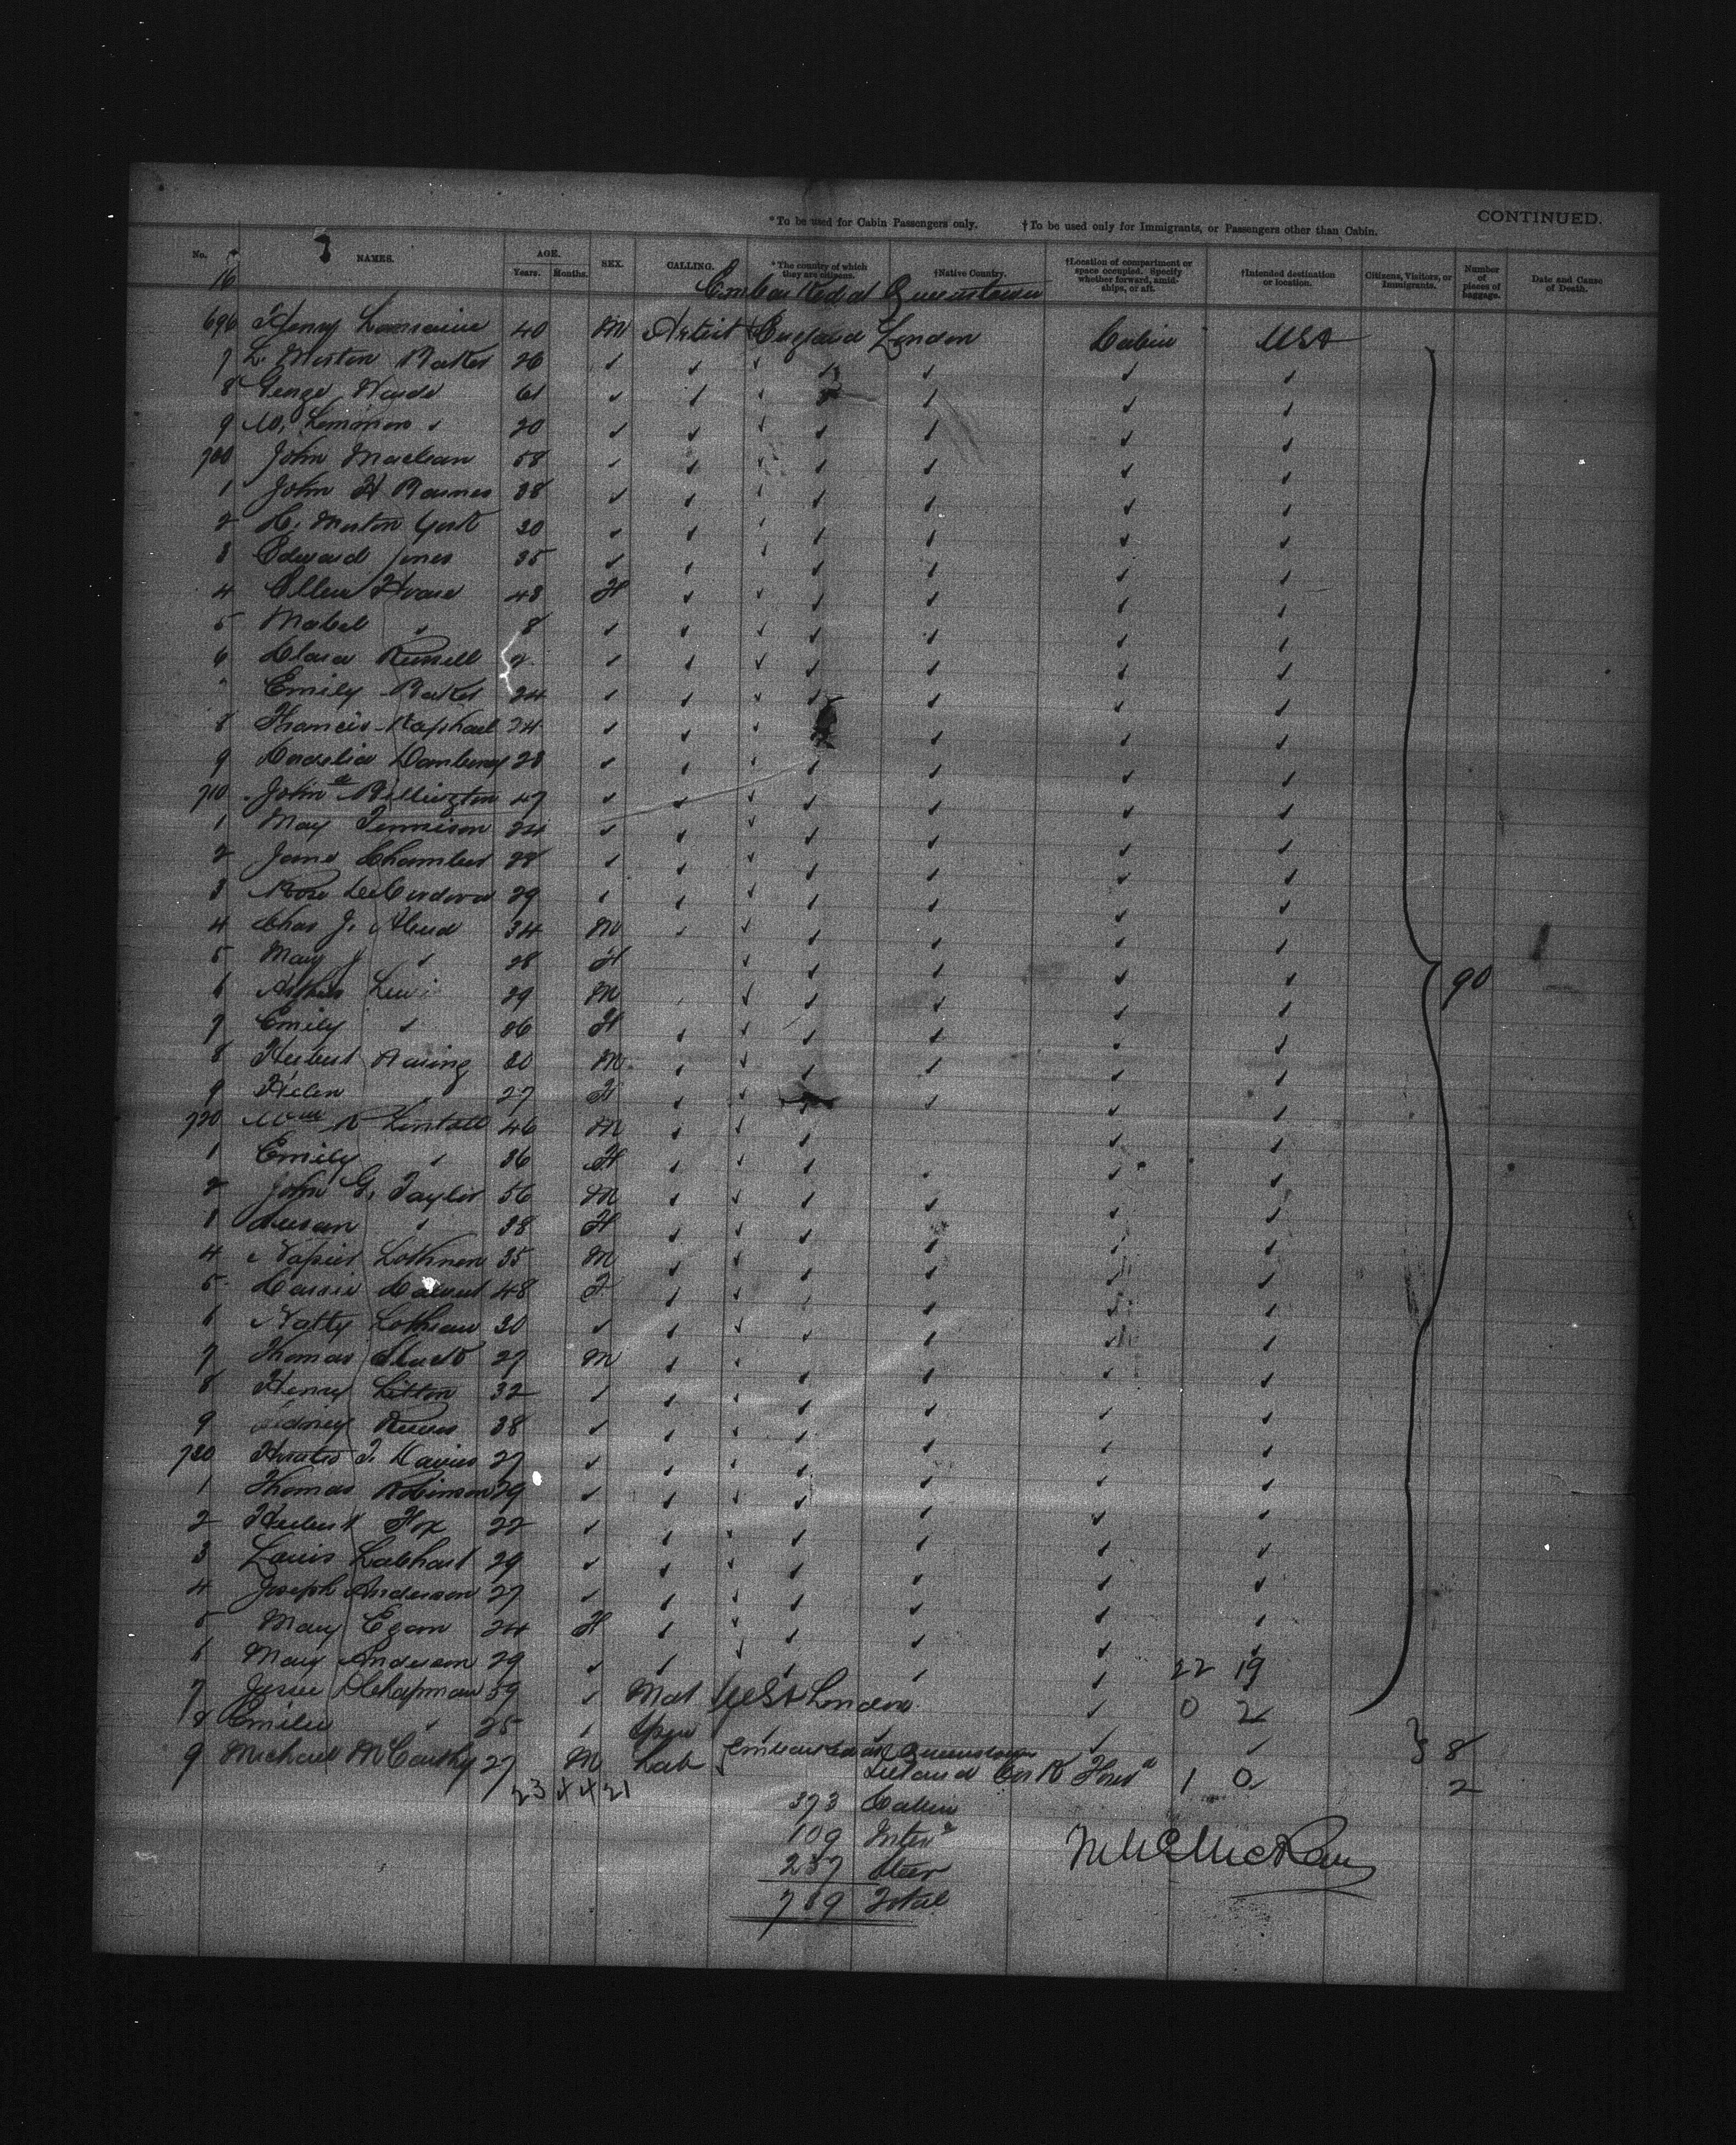 CONTINUED.
*To be used for Cabin Passengers only. †To be used only for Immigrants, or Passengers other than Cabin.
No. NAMES. AGE. Years. Months. SEX. CALLING. *The country of which they are citizens. †Native Country. †Location of compartment or space occupied. Specify whether forward, amidships, or aft. †Intended destination or location. Citizens, Visitors, or Immigrants. Number of pieces of baggage. Date and Cause of Death.
16
Embarked at Queenstown
696 Henry Lorraine 40 M Artist England London Cabin USA
7 L. Morton Baker 26 ✓
8 George Warde 61 ✓
9 W. Lemmon ✓ 20 ✓
700 John Maclean 58 ✓
1 John H Barnes 38 ✓
2 H. Morton York 30 ✓
3 Edward Jones 35 ✓
4 Ellen Hoare 48 F
5 Mabel ✓ 8 ✓
6 Clara Russell 2 ✓
" Emily Baker 24 ✓
8 Francis Raphael 24 ✓
9 28 ✓
710 John Billington 47 ✓
1 May Jennison 24 ✓
2 Jane Chambers 28 ✓
3 Rose De Cordova 29 ✓
4 Chas J. 34 M
5 May J ✓ 28 F
6 Arthur Lewis 29 M
7 Emily ✓ 26 F
8 Herbert Waring 30 M
9 Helen ✓ 27 F
720 Wm H 46 M
1 Emily ✓ 36 F
2 John G. Taylor 56 M
3 Susan ✓ 38 F
4 Napier 35 M
5 48 F
6 Natty Lothian 30 ✓
7 Thomas 27 M
8 Henry Litton 32 ✓
9 Sidney 38 ✓
730 Horatio T. Davies 27 ✓
1 Thomas Robinson 29 ✓
2 Herbert Fox 22 ✓
3 Louis Labhart 29 ✓
4 Joseph Anderson 27 ✓
5 Mary Egan 24 F
6 Mary Anderson 29 ✓ 22 19
90
7 Chapman 59 ✓ USA London ✓ 0 2
8 Emilie " 25 ✓ ✓ ✓ 8
Embarked at Queenstown
9 Michael McCarthy 27 M Lab Ireland Ford 1 0 2
23 4 4 21
373 Cabin
109 Inter
237 Steer
719 Total